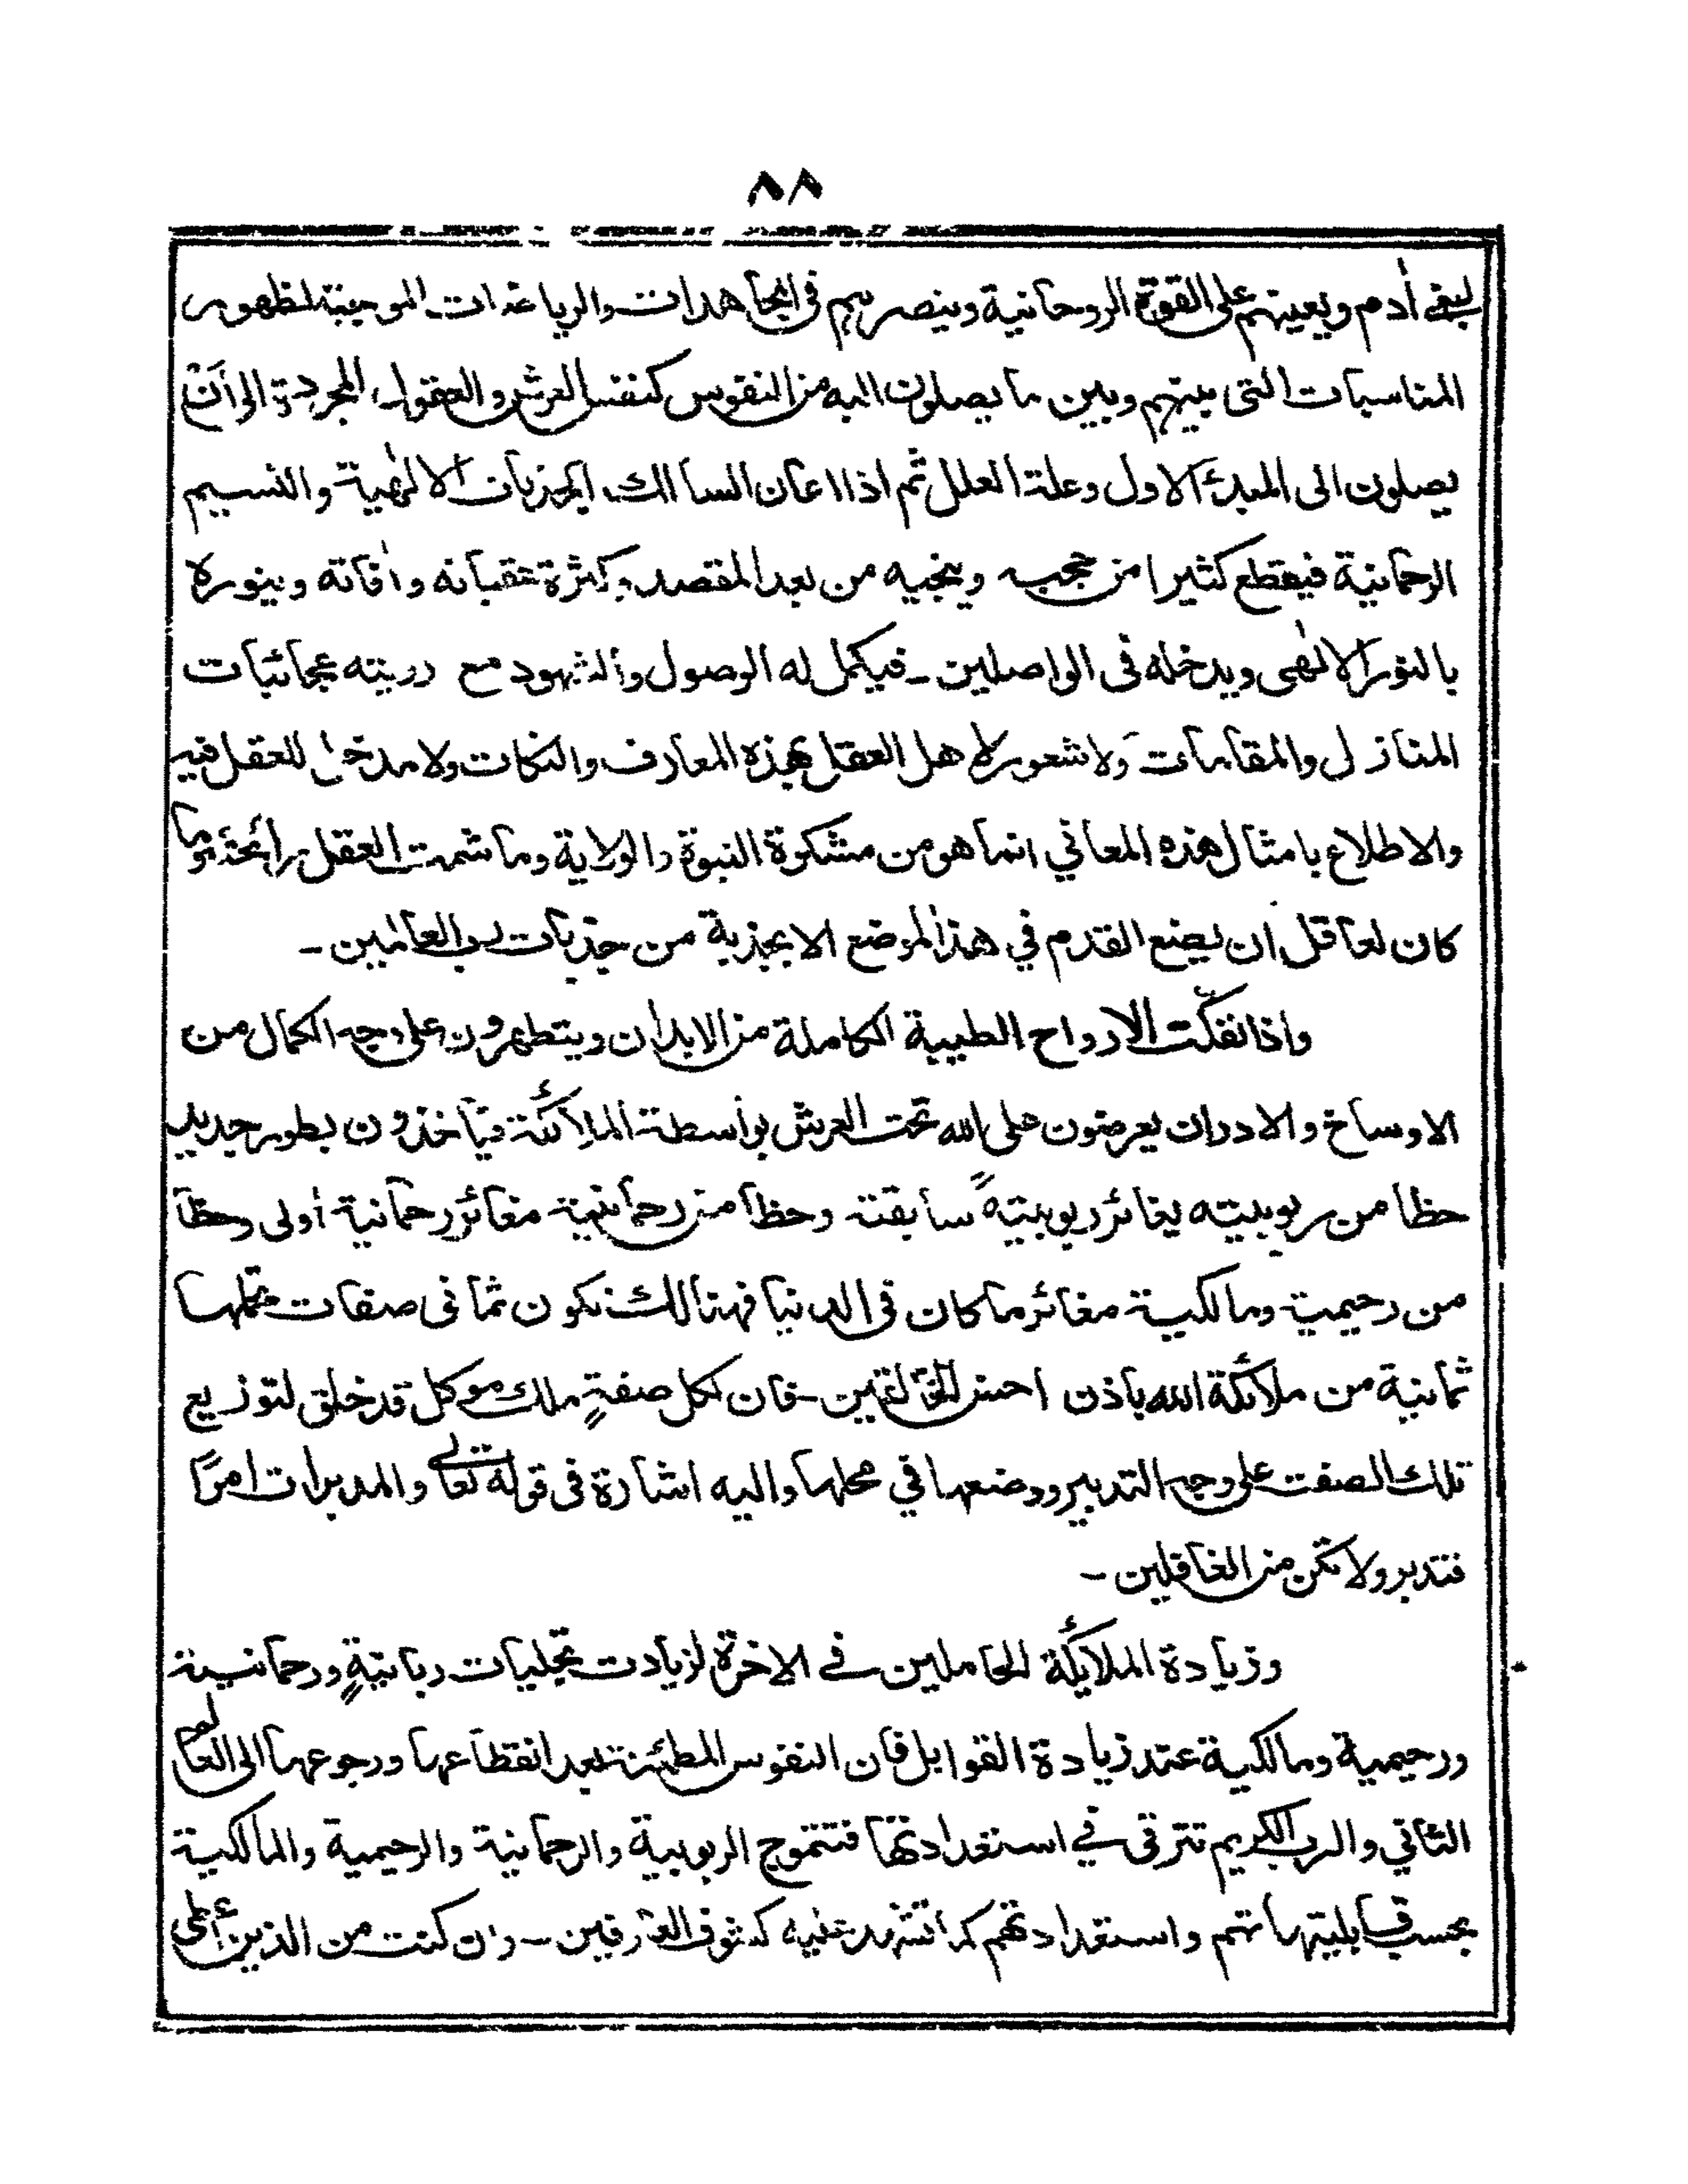 ٨٨
لبنى أدم ويعينهم على القوة الروحانية وينصرهم في المجاهدات والرياضات الموجبة لظهور
المناسبات التى بينهم وبين ما يصلون اليه من النفوس كنفس العرش والعقول المجردة الى أن
يصلون الى المبدء الاول وعلة العلل ثم اذا اعان السالك الجذبات الالٰهية والنسيم
الرحمانية فيقطع كثيرا من حجبه وينجيه من بعد المقصد وكثرة عقباته واٰفاته وينوره
بالنور الالٰهى ويدخله فى الواصلين ـ فيكمل له الوصول والشهود مع رويته عجائبات
المنازل والمقامات ولا شعور لاهل العقل بهذه المعارف والنكات ولا مدخل للعقل فيه
والاطلاع بامثال هذه المعاني انما هو من مشكوة النبوة والولاية وما شمت العقل رائحته وما
كان لعاقل ان يضع القدم في هذا الموضع الا بجذبة من جذبات رب العالمين ـ
واذا انفكّت الارواح الطيبة الكاملة من الابدان ويتطهرون على وجه الكمال من
الاوساخ والادران يعرضون على الله تحت العرش بواسطة الملائكة فيأخذون بطور جديد
حظا من ربوبيته يغائر ربوبيته سابقة وحظا من رحمانية مغائر رحمانية أولى وحظا
من رحيمية ومالكية مغائر ما كان فى الدنيا فهنالك تكون ثمانى صفات تحملها
ثمانية من ملائكة الله باذن احسن الخالقين ـ فان لكل صفةٍ ملك موكل قد خلق لتوزيع
تلك الصفت على وجه التدبير ووضعها في محلها واليه اشارة فى قوله تعالى والمدبرات امرًا
فتدبر ولا تكن من الغافلين ـ
وزيادة الملائكة الحاملين في الاخرة لزيادت تجليات ربانيةٍ ورحمانية
ورحيمية ومالكية عند زيادة القوابل فان النفوس المطئنة بعد انقطاعها ورجوعها الى العالم
الثاني والرب الكريم تترقى في استعداداتها فتتموج الربوبية والرحمانية والرحيمية والمالكية
بحسب قابلياتهم واستعداداتهم كما تشهد عليه كشوف العارفين ـ وان كنت من الذين أعطى